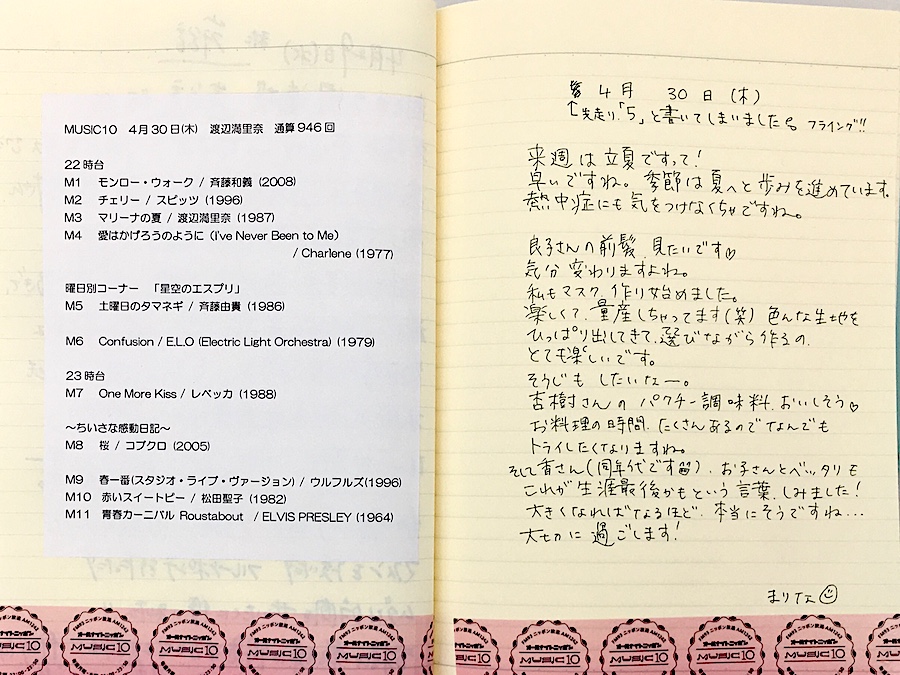 MUSIC10 4月30日(木) 渡辺満里奈 通算946回
22時台
M1 モンロー・ウォーク / 斉藤和義 (2008)
M2 チェリー / スピッツ (1996)
M3 マリーナの夏 / 渡辺満里奈 (1987)
M4 愛はかげろうのように (I've Never Been to Me)
/ Charlene (1977)
曜日別コーナー 「星空のエスプリ」
M5 土曜日のタマネギ / 斉藤由貴 (1986)
M6 Confusion / E.L.O (Electric Light Orchestra) (1979)
23時台
M7 One More Kiss / レベッカ (1988)
～ちいさな感動日記～
M8 桜 / コブクロ (2005)
M9 春一番(スタジオ・ライブ・ヴァージョン) / ウルフルズ(1996)
M10 赤いスイートピー / 松田聖子 (1982)
M11 青春カーニバル Roustabout / ELVIS PRESLEY (1964)
4月 30日 (木)
↑先走り「5」と書いてしまいました。フライング!!
来週は立夏ですって!
早いですね。季節は夏へと歩みを進めています。
熱中症にも気をつけなくちゃですね。
良子さんの前髪、見たいです♡
気分変わりますよね。
私もマスク、作り始めました。
楽しくて、量産しちゃってます(笑) 色んな生地を
ひっぱり出してきて、選びながら作るの、
とても楽しいです。
そうじも したいなー。
杏樹さんの パクチー調味料、おいしそう♡
お料理の時間、たくさんあるのでなんでも
トライしたくなりますね。
そして香さん(同年代です)、お子さんとベッタリも
これが生涯最後かもという言葉、しみました!
大きくなればなるほど、本当にそうですね…
大切に過ごします!
まりな☺
オールナイトニッポン
MUSIC10
オールナイトニッポン
MUSIC10
オールナイトニッポン
MUSIC10
オールナイトニッポン
MUSIC10
オールナイトニッポン
MUSIC10